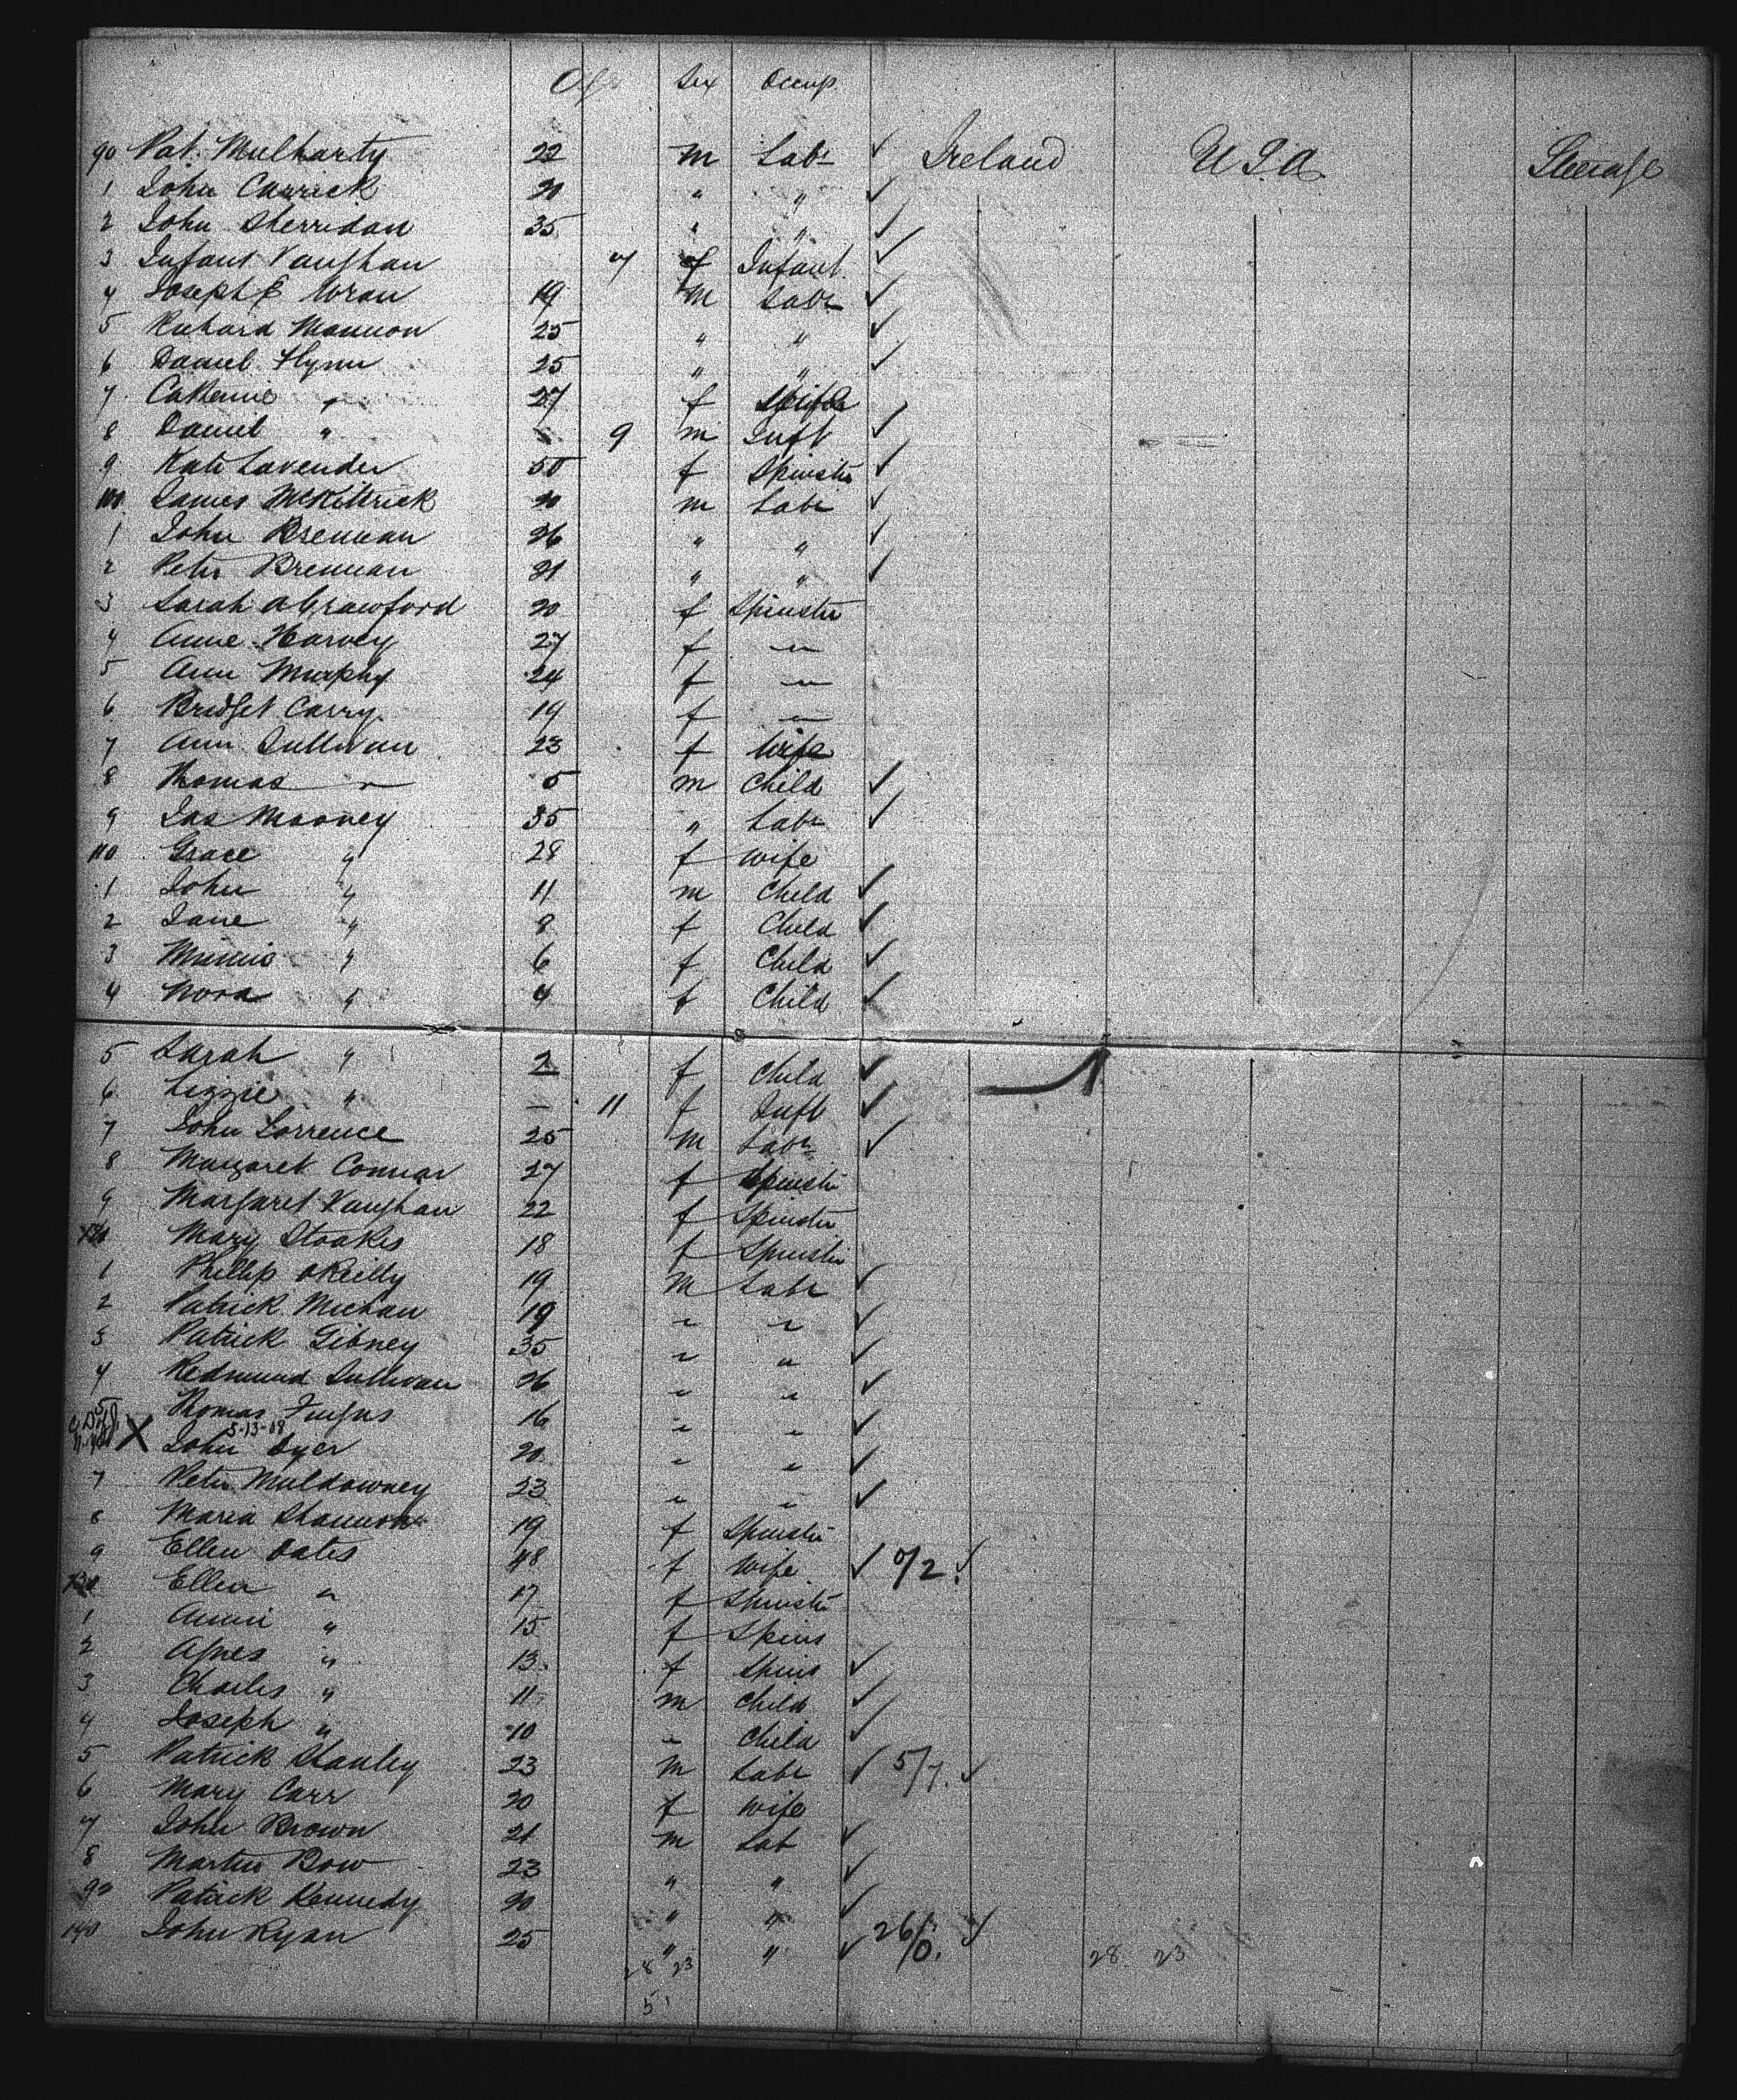 Age Sex Occup
90 Pat. Mulharty 22 m Labr ✓ Ireland U.S.A. Steerage
1 John Carrick 20 " " ✓
2 John Sherridan 35 " " ✓
3 Infant Vaughan 7 f Infant ✓
4 Joseph Wran 19 m Labr ✓
5 Richard Mannon 25 " " ✓
6 Daniel Flynn 25 " " ✓
7 Catherine " 27 f Wife
8 Daniel " 9 m Inft ✓
9 Kate Lavender 50 f Spinstr ✓
100 James McKittrick 20 m Labr ✓
1 John Brennan 26 " " ✓
2 Peter Brennan 21 " " ✓
3 Sarah A Crawford 20 f Spinster
4 Anne Harvey 27 f "
5 Ann Murphy 24 f "
6 Bridget Carry 19 f "
7 Ann Sullivan 23 f Wife
8 Thomas " 5 m Child ✓
9 Jas Mooney 35 " Labr ✓
110 Grace " 28 f Wife
1 John " 11 m Child ✓
2 Jane " 8 f Child ✓
3 Minnie " 6 f Child ✓
4 Nora " 4 f Child ✓
5 Sarah " 2 f Child ✓
6 Lizzie " – 11 f Inft ✓
7 John Lorrence 25 m Labr ✓
8 Margaret Connar 27 f Spinstr
9 Margaret Vaughan 22 f Spinstr
120 Mary Stoakes 18 f Spinstr
1 Phillip OReilly 19 m Labr ✓
2 Patrick Meehan 19 " " ✓
3 Patrick Gibney 35 " " ✓
4 Redmund Sullivan 26 " " ✓
5 Thomas 16 " " ✓
5-13-08
X John Dyer 20 " " ✓
7 Peter Muldowney 23 " " ✓
8 Maria Shannon 19 f Spinstr
9 Ellen Oates 48 f Wife ✓ 0/2. ✓
130 Ellen " 17 f Spinstr
1 Annie " 15 f Spins
2 Agnes " 13 f Spins ✓
3 Charles " 11 m Child ✓
4 Joseph " 10 " Child ✓
5 Patrick Stanley 23 m Labr ✓ 5/7. ✓
6 Mary Carr 20 f Wife
7 John Brown 21 m Lab ✓
8 Martin Bow 23 " " ✓
9 Patrick Kennedy 20 " " ✓
140 John Ryan 25 " " ✓ 26/0. ✓
28 23 28 23
51